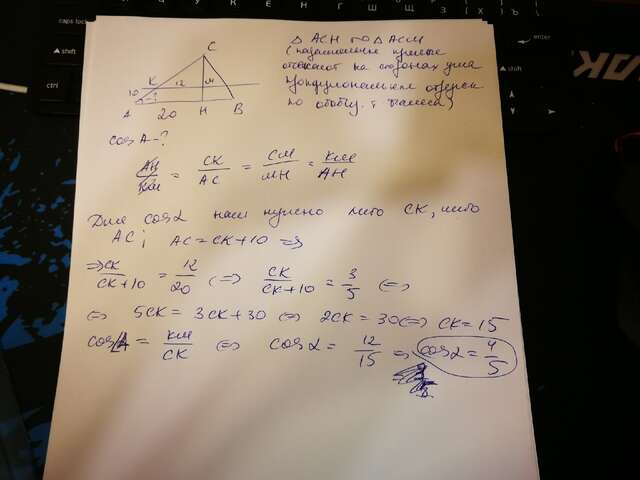 C
K
12
M
10
A
20
H
B
Δ ACH ∾ Δ ACM
(параллельные прямые
отсекают на сторонах угла
пропорциональные отрезки
по обобщ. т Фалеса)
cos A - ?
CK/AC = CM/MH = KM/AH
Для cosα нам нужено либо CK, либо
AC; AC = CK + 10 ⇒
⇒ CK/CK+10 = 12/20 ⇔ CK/CK+10 = 3/5 ⇔
⇔ 5CK = 3CK + 30 ⇔ 2CK = 30 ⇔ CK = 15
cos A = KM/CK ⇔ cosα = 12/15 ⇔ cosα = 4/5
caps lock
shift
ctrl
alt
enter
shift